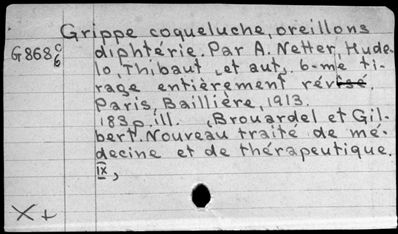 Grippe coqueluche, oreillons
G868 c/6 diphtérie. Par A. Netter, Hude-
lo, Thibaut et aut. 6-me ti-
rage entièrement révisé.
Paris, Baillière, 1913.
183p. ill. (Brouardel et Gil-
bert. Nouveau traité de mé-
decine et de thérapeutique.
IX,
X+